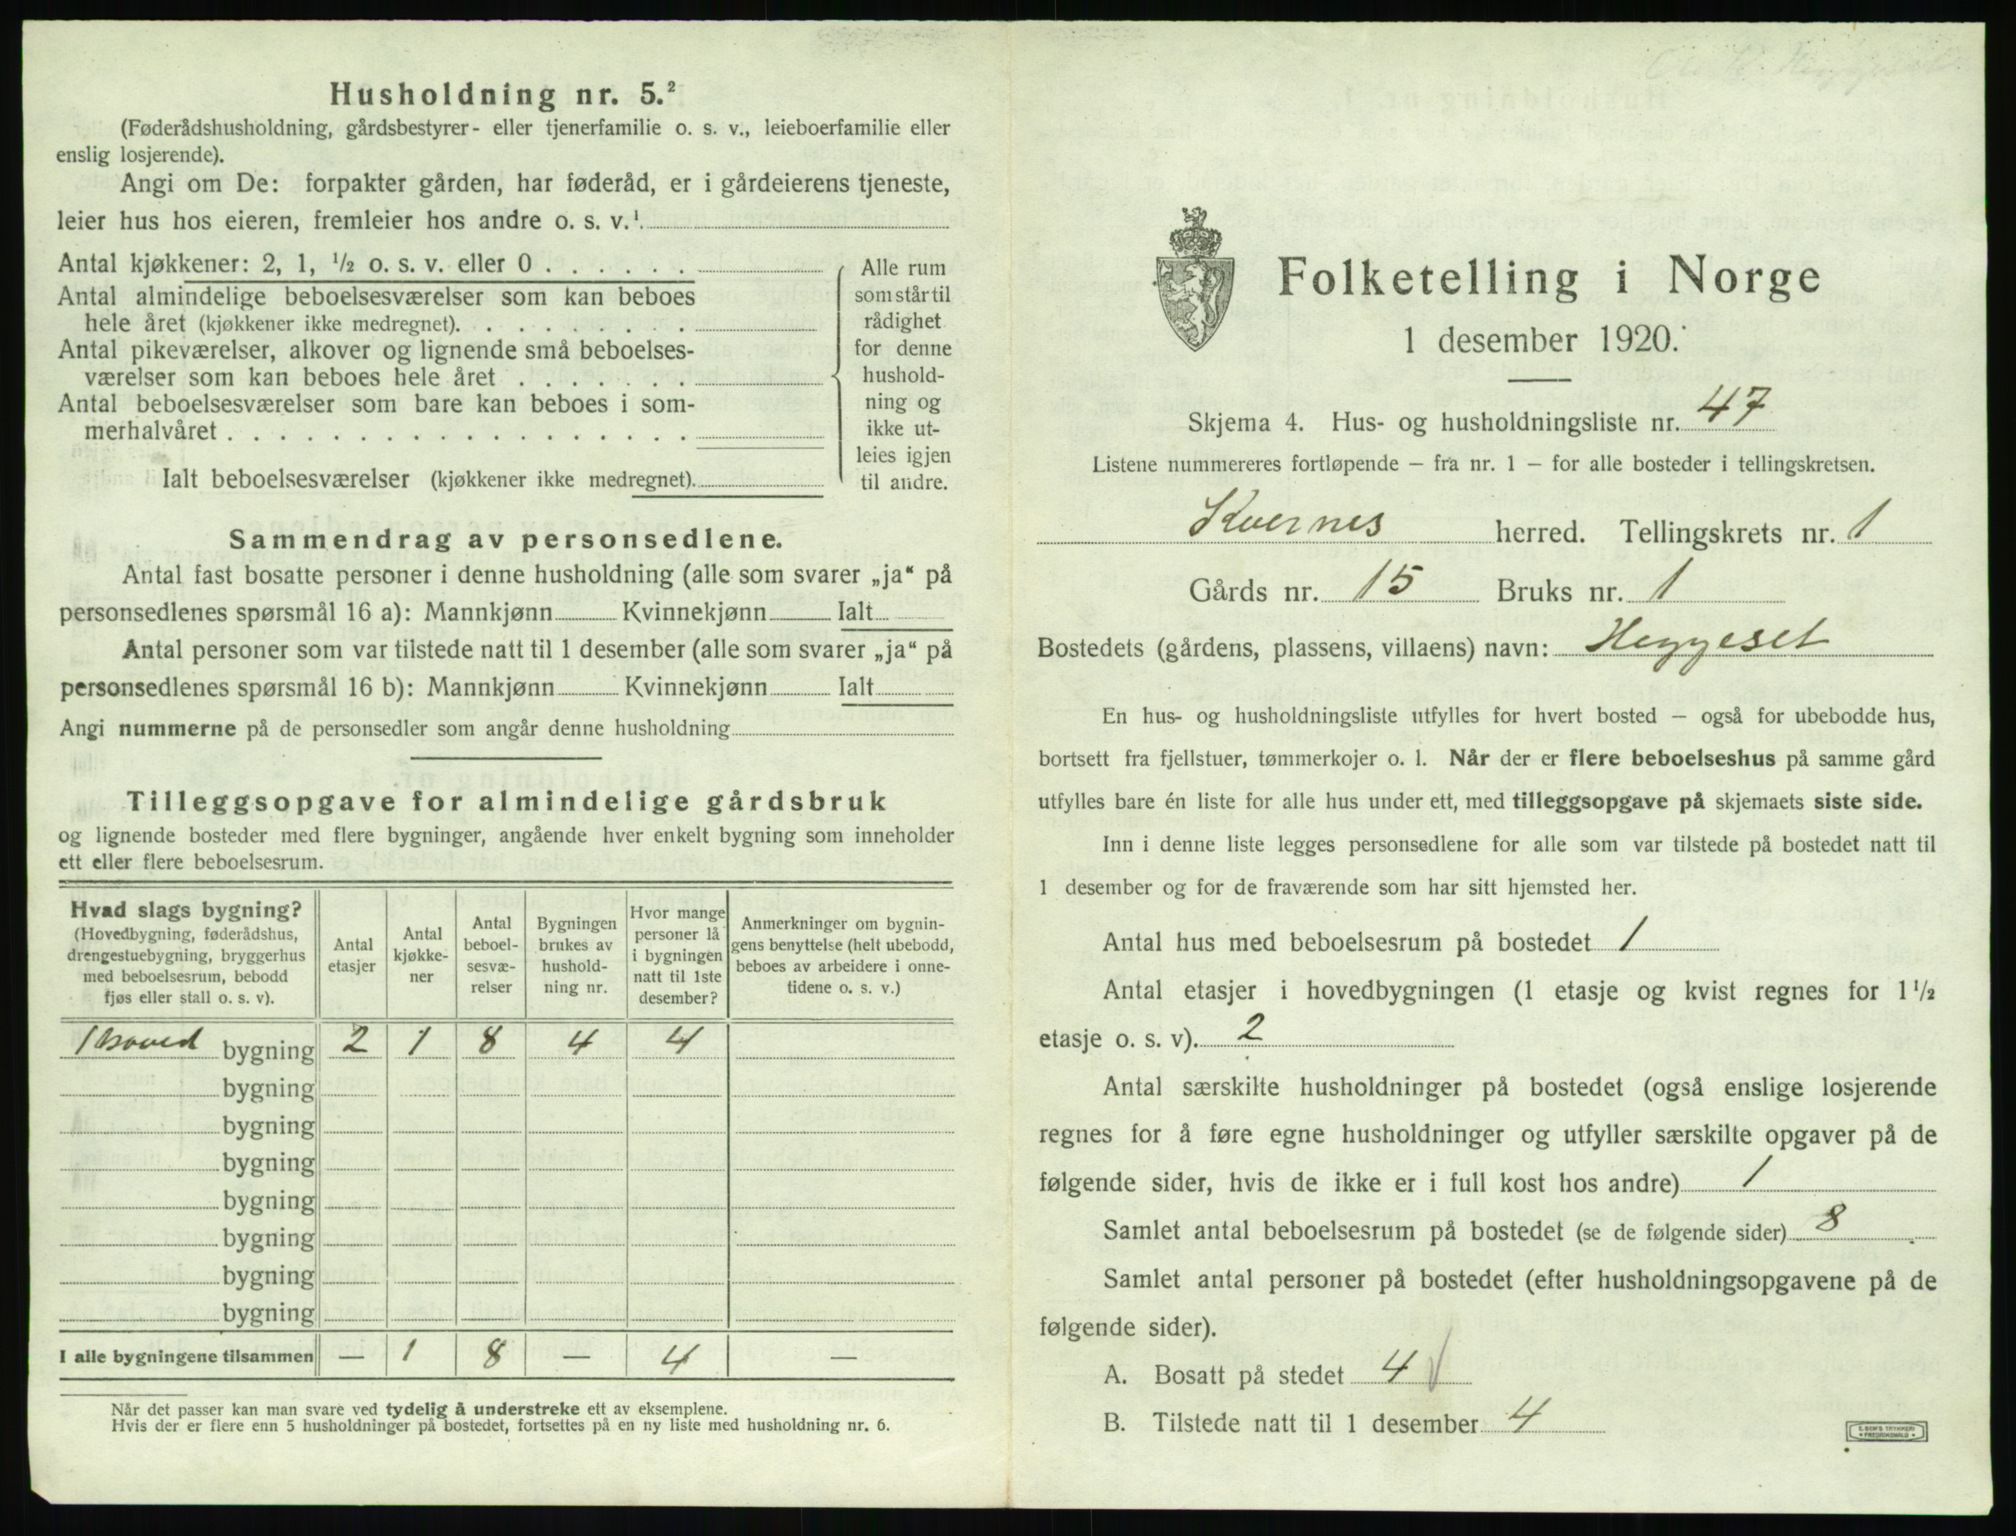 Husholdning nr. 5.²
(Føderådshusholdning, gårdsbestyrer- eller tjenerfamilie o. s. v., leieboerfamilie eller
enslig losjerende).
Angi om De: forpakter gården, har føderåd, er i gårdeierens tjeneste,
leier hus hos eieren, fremleier hos andre o. s. v.¹
Antal kjøkkener: 2, 1, ½ o. s. v. eller 0
Antal almindelige beboelsesværelser som kan beboes
hele året (kjøkkener ikke medregnet).
Antal pikeværelser, alkover og lignende små beboelses-
værelser som kan beboes hele året
Antal beboelsesværelser som bare kan beboes i som-
merhalvåret
Ialt beboelsesværelser (kjøkkener ikke medregnet).
Alle rum
som står til
rådighet
for denne
hushold-
ning og
ikke ut-
leies igjen
til andre.
Sammendrag av personsedlene.
Antal fast bosatte personer i denne husholdning (alle som svarer „ja“ på
personsedlenes spørsmål 16 a): Mannkjønn Kvinnekjønn Ialt
Antal personer som var tilstede natt til 1 desember (alle som svarer „ja“ på
personsedlenes spørsmål 16 b): Mannkjønn Kvinnekjønn Ialt
Angi nummerne på de personsedler som angår denne husholdning
Tilleggsopgave for almindelige gårdsbruk
og lignende bosteder med flere bygninger, angående hver enkelt bygning som inneholder
ett eller flere beboelsesrum.
Hvad slags bygning?
(Hovedbygning, føderådshus,
drengestuebygning, bryggerhus
med beboelsesrum, bebodd
fjøs eller stall o. s. v).
Antal
etasjer
Antal
kjøkke-
ner
Antal
beboel-
sesvæ-
relser
Bygningen
brukes av
hushold-
ning nr.
Hvor mange
personer lå
i bygningen
natt til 1ste
desember?
Anmerkninger om bygnin-
gens benyttelse (helt ubebodd,
beboes av arbeidere i onne-
tidene o. s. v.)
bygning 2 1 8 4 4
bygning
bygning
bygning
bygning
bygning
bygning
bygning
I alle bygningene tilsammen — 1 8 — 4 —
Når det passer kan man svare ved tydelig å understreke ett av eksemplene.
Hvis der er flere enn 5 husholdninger på bostedet, fortsettes på en ny liste med husholdning nr. 6.
Folketelling i Norge
1 desember 1920.
Skjema 4. Hus- og husholdningsliste nr. 47
Listene nummereres fortløpende — fra nr. 1 — for alle bosteder i tellingskretsen.
Kvernes herred. Tellingskrets nr. 1
Gårds nr. 15 Bruks nr. 1
Bostedets (gårdens, plassens, villaens) navn: Heggeset
En hus- og husholdningsliste utfylles for hvert bosted — også for ubebodde hus,
bortsett fra fjellstuer, tømmerkojer o. l. Når der er flere beboelseshus på samme gård
utfylles bare én liste for alle hus under ett, med tilleggsopgave på skjemaets siste side.
Inn i denne liste legges personsedlene for alle som var tilstede på bostedet natt til
1 desember og for de fraværende som har sitt hjemsted her.
Antal hus med beboelsesrum på bostedet 1
Antal etasjer i hovedbygningen (1 etasje og kvist regnes for 1½
etasje o. s. v). 2
Antal særskilte husholdninger på bostedet (også enslige losjerende
regnes for å føre egne husholdninger og utfyller særskilte opgaver på de
følgende sider, hvis de ikke er i full kost hos andre) 1
Samlet antal beboelsesrum på bostedet (se de følgende sider) 8
Samlet antal personer på bostedet (efter husholdningsopgavene på de
følgende sider).
A. Bosatt på stedet 4
B. Tilstede natt til 1 desember 4